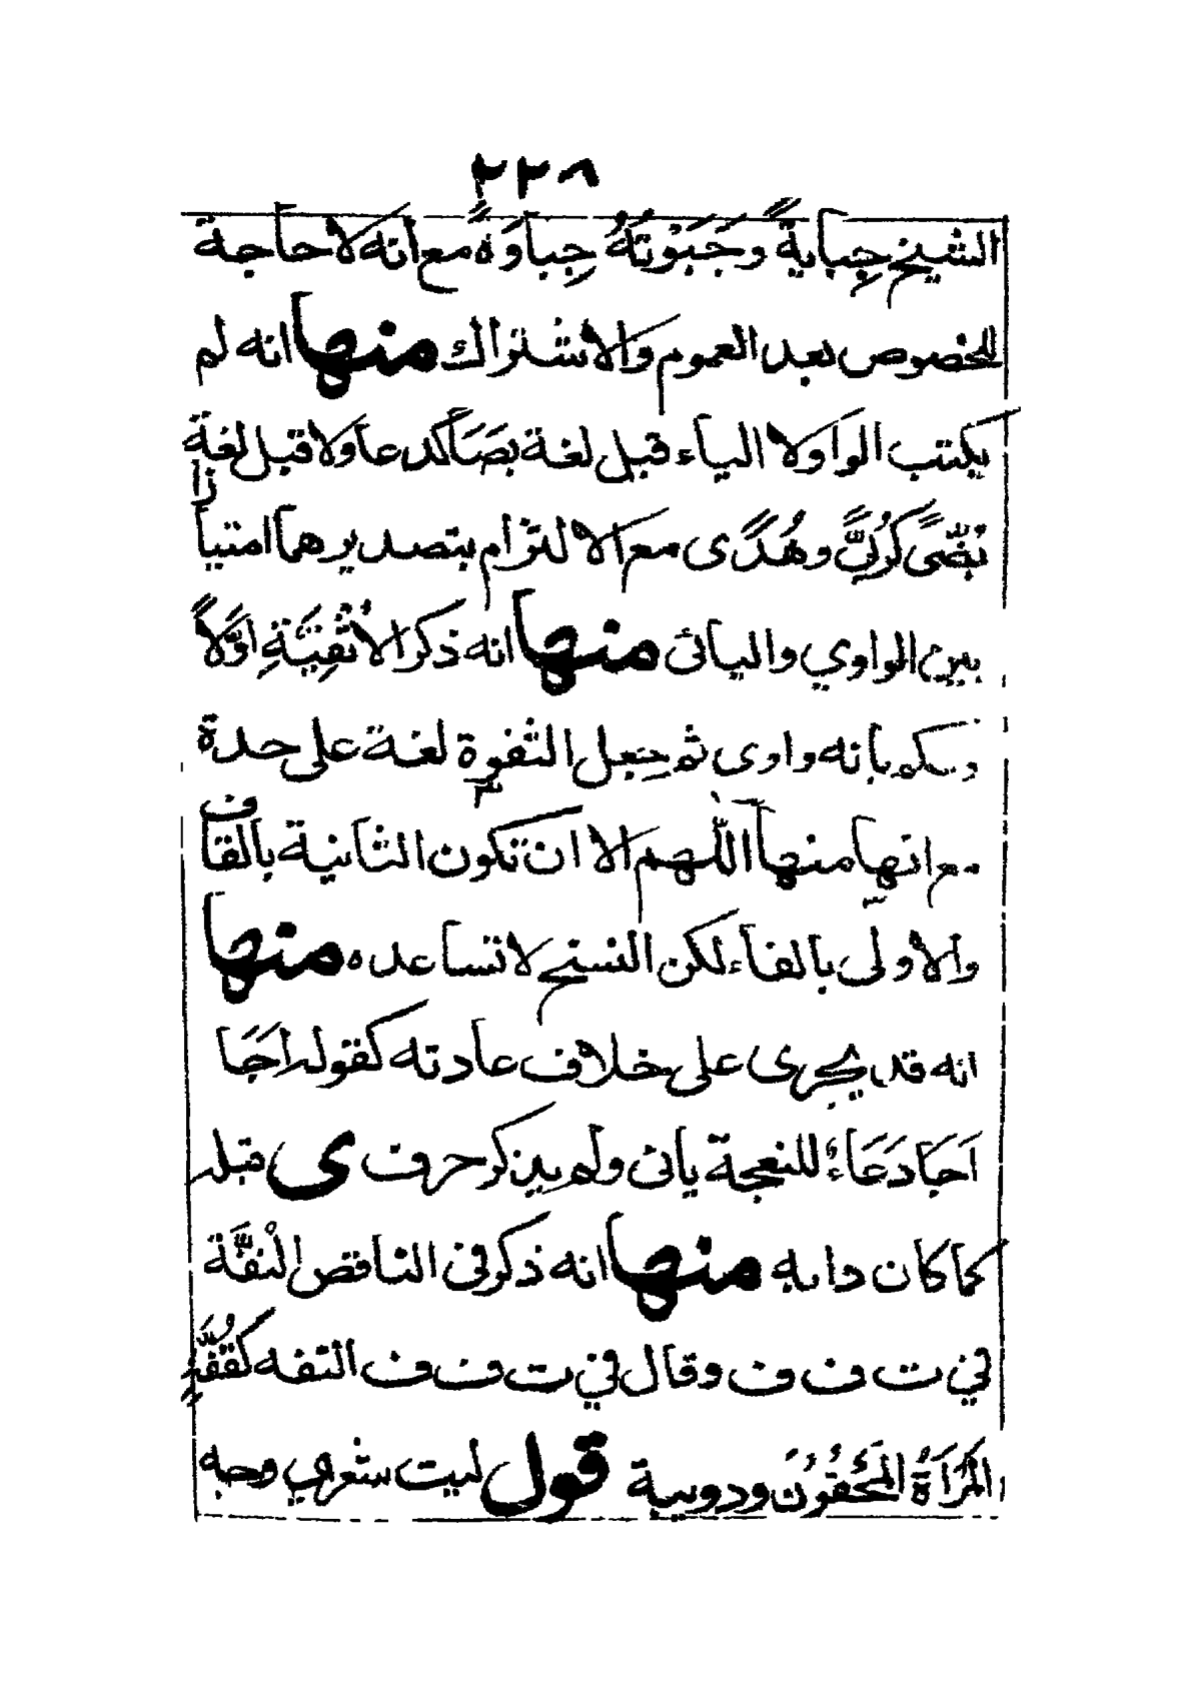 ٢٢٨
الشيخ جِبايةً وجَبَوْتهُ جِباوَةً مع انه لا حاجة
للخصوص بعد العموم والاشتراك منها انه لم
يكتب الواو ولا الياء قبل لغة بَصَا كدعا ولا قبل لغة
كَرُبًّى وهُدًى مع الالتزام بتصديرهما امتيازا
بين الواوي واليائى منها انه ذكر الأثفِيَّةِ اوّلاً
وحكم بانه واوى ثم جعل الثفوة لغة على حدة
مع انها منها اللّهم الا ان تكون الثانية بالقاف
والاولى بالفاء لكن النسخ لا تساعده منها
انه قد يجرى على خلاف عادته كقوله اَجَا
اَجَا دَعَاءٌ للنعجة يائى ولم يذكر حرف ى قبله
كما كان دابه منها انه ذكر فى الناقص التُّفَّة
فى ت ف ف وقال فى ت ف ف التفه كقُفَّةٍ
المَرْاَةُ المَحْقُورَةُ ودويبة قول ليت شعرى وجه